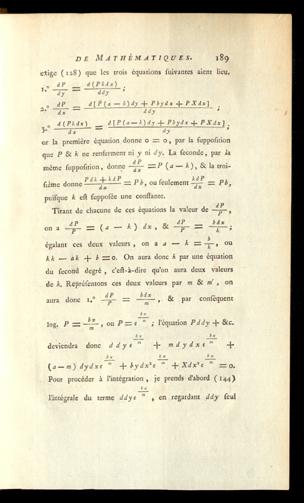 DE MATHÉMATIQUES. 189
exige (128) que les trois équations suivantes aient lieu.
1.° dP/dy = d(Pkdx)/ddy ;
2.° dP/dx = d[P(a — k)dy + Pbydx + PXdx]/ddy ;
3.° d(Pkdx)/dx = d[P(a — k)dy + Pbydx + PXdx]/dy ;
or la première équation donne 0 = 0, par la supposition
que P & k ne renferment ni y ni dy. La seconde, par la
même supposition, donne dP/dx = P (a — k), & la troi-
sième donne Pdk + kdP/dx = Pb, ou seulement kdP/dx = Pb,
puisque k est supposée une constante.
Tirant de chacune de ces équations la valeur de dP/P,
on a dP/P = (a — k) dx, & dP/P = bdx/k ;
égalant ces deux valeurs, on a a — k = b/k, ou
kk — ak + b = 0. On aura donc k par une équation
du second degré, c'est-à-dire qu'on aura deux valeurs
de k. Représentons ces deux valeurs par m & m', on
aura donc 1.° dP/P = bdx/m, & par conséquent
log. P = bx/m, ou P = e^(bx/m) ; l'équation Pddy + &c.
deviendra donc ddye^(bx/m) + mdydxe^(bx/m) +
(a — m) dydxe^(bx/m) + bydx²e^(bx/m) + Xdx²e^(bx/m) = 0.
Pour procéder à l'intégration, je prends d'abord (144)
l'intégrale du terme ddye^(bx/m), en regardant ddy seul